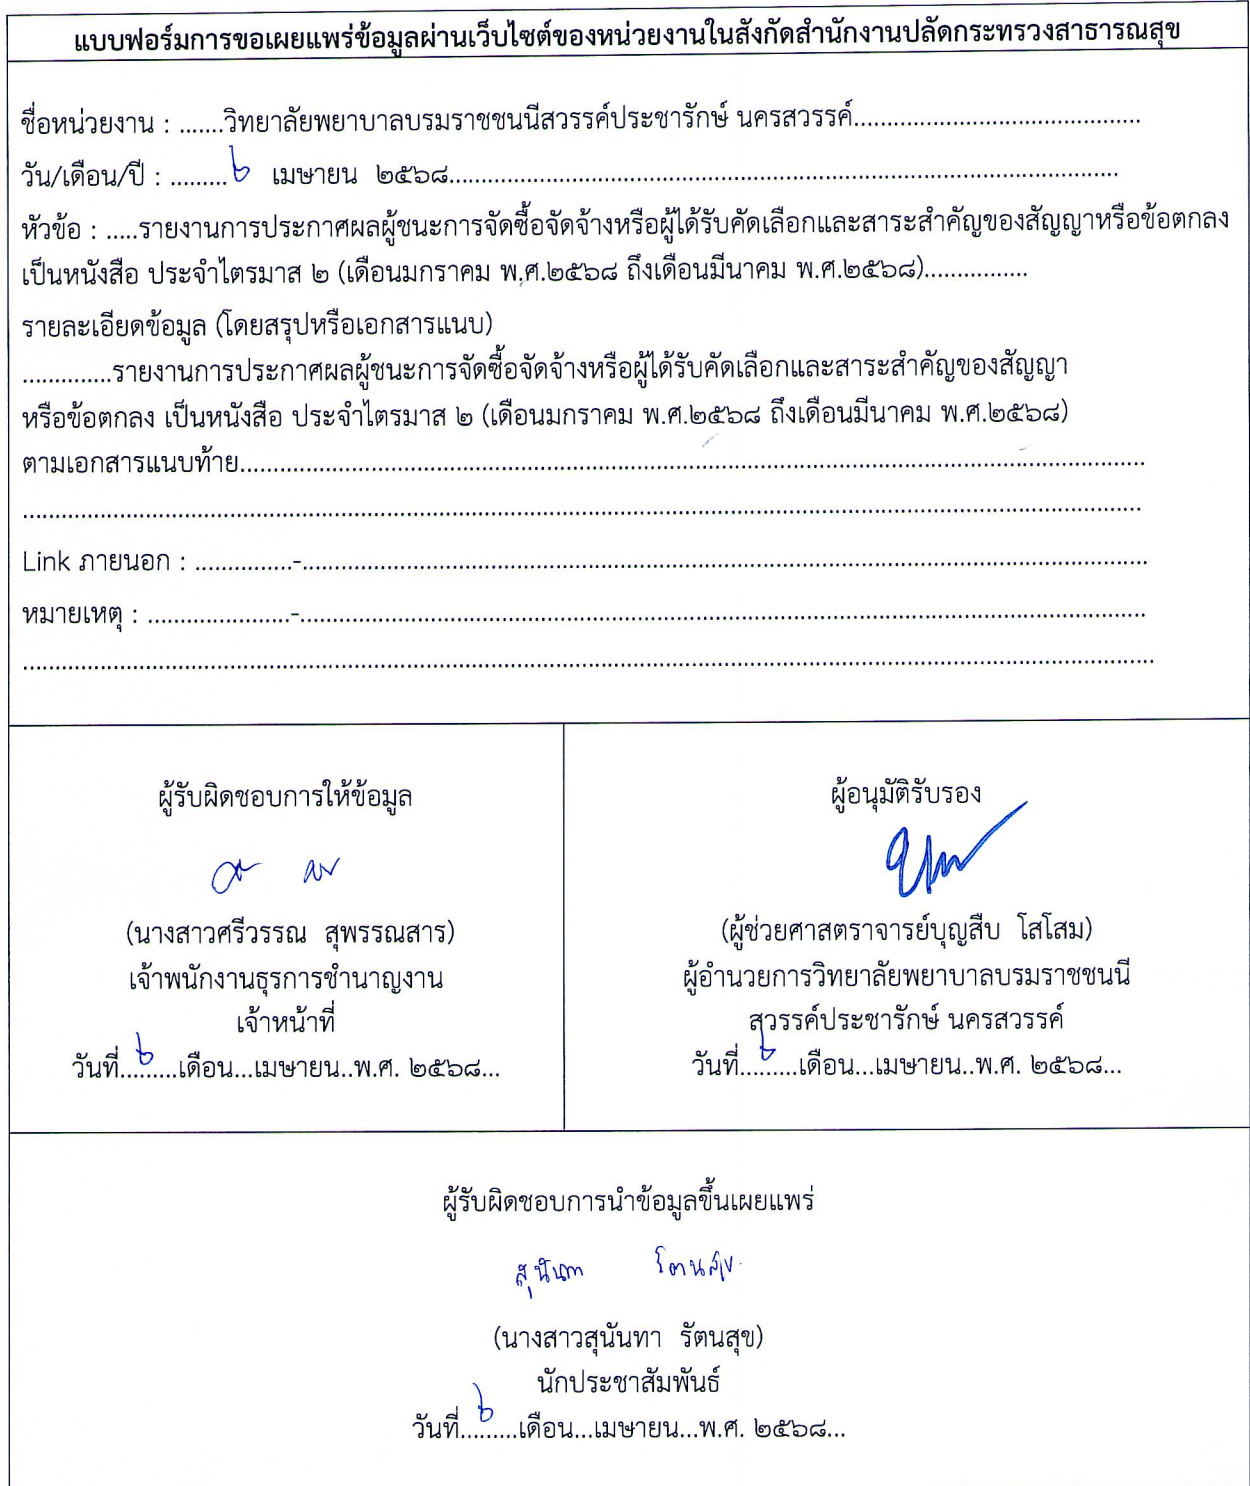 แบบฟอร์มการขอเผยแพร่ข้อมูลผ่านเว็บไซต์ของหน่วยงานในสังกัดสำนักงานปลัดกระทรวงสาธารณสุข
ชื่อหน่วยงาน : .......วิทยาลัยพยาบาลบรมราชชนนีสวรรค์ประชารักษ์ นครสวรรค์............................................
วัน/เดือน/ปี : ......... ๖ เมษายน ๒๕๖๘.......................................................................................................
หัวข้อ : .....รายงานการประกาศผลผู้ชนะการจัดซื้อจัดจ้างหรือผู้ได้รับคัดเลือกและสาระสำคัญของสัญญาหรือข้อตกลง
เป็นหนังสือ ประจำไตรมาส ๒ (เดือนมกราคม พ.ศ.๒๕๖๘ ถึงเดือนมีนาคม พ.ศ.๒๕๖๘)................
รายละเอียดข้อมูล (โดยสรุปหรือเอกสารแนบ)
..............รายงานการประกาศผลผู้ชนะการจัดซื้อจัดจ้างหรือผู้ได้รับคัดเลือกและสาระสำคัญของสัญญา
หรือข้อตกลง เป็นหนังสือ ประจำไตรมาส ๒ (เดือนมกราคม พ.ศ.๒๕๖๘ ถึงเดือนมีนาคม พ.ศ.๒๕๖๘)
ตามเอกสารแนบท้าย...........................................................................................................................................
Link ภายนอก : ...............-..................................................................................................................................
หมายเหตุ : ......................-..................................................................................................................................
ผู้รับผิดชอบการให้ข้อมูล
(นางสาวศรีวรรณ สุพรรณสาร)
เจ้าพนักงานธุรการชำนาญงาน
เจ้าหน้าที่
วันที่....๖.....เดือน...เมษายน..พ.ศ. ๒๕๖๘...
ผู้อนุมัติรับรอง
(ผู้ช่วยศาสตราจารย์บุญสืบ โสโสม)
ผู้อำนวยการวิทยาลัยพยาบาลบรมราชชนนี
สวรรค์ประชารักษ์ นครสวรรค์
วันที่....๖.....เดือน...เมษายน..พ.ศ. ๒๕๖๘...
ผู้รับผิดชอบการนำข้อมูลขึ้นเผยแพร่
สุนันทา รัตนสุข
(นางสาวสุนันทา รัตนสุข)
นักประชาสัมพันธ์
วันที่....๖.....เดือน...เมษายน...พ.ศ. ๒๕๖๘...